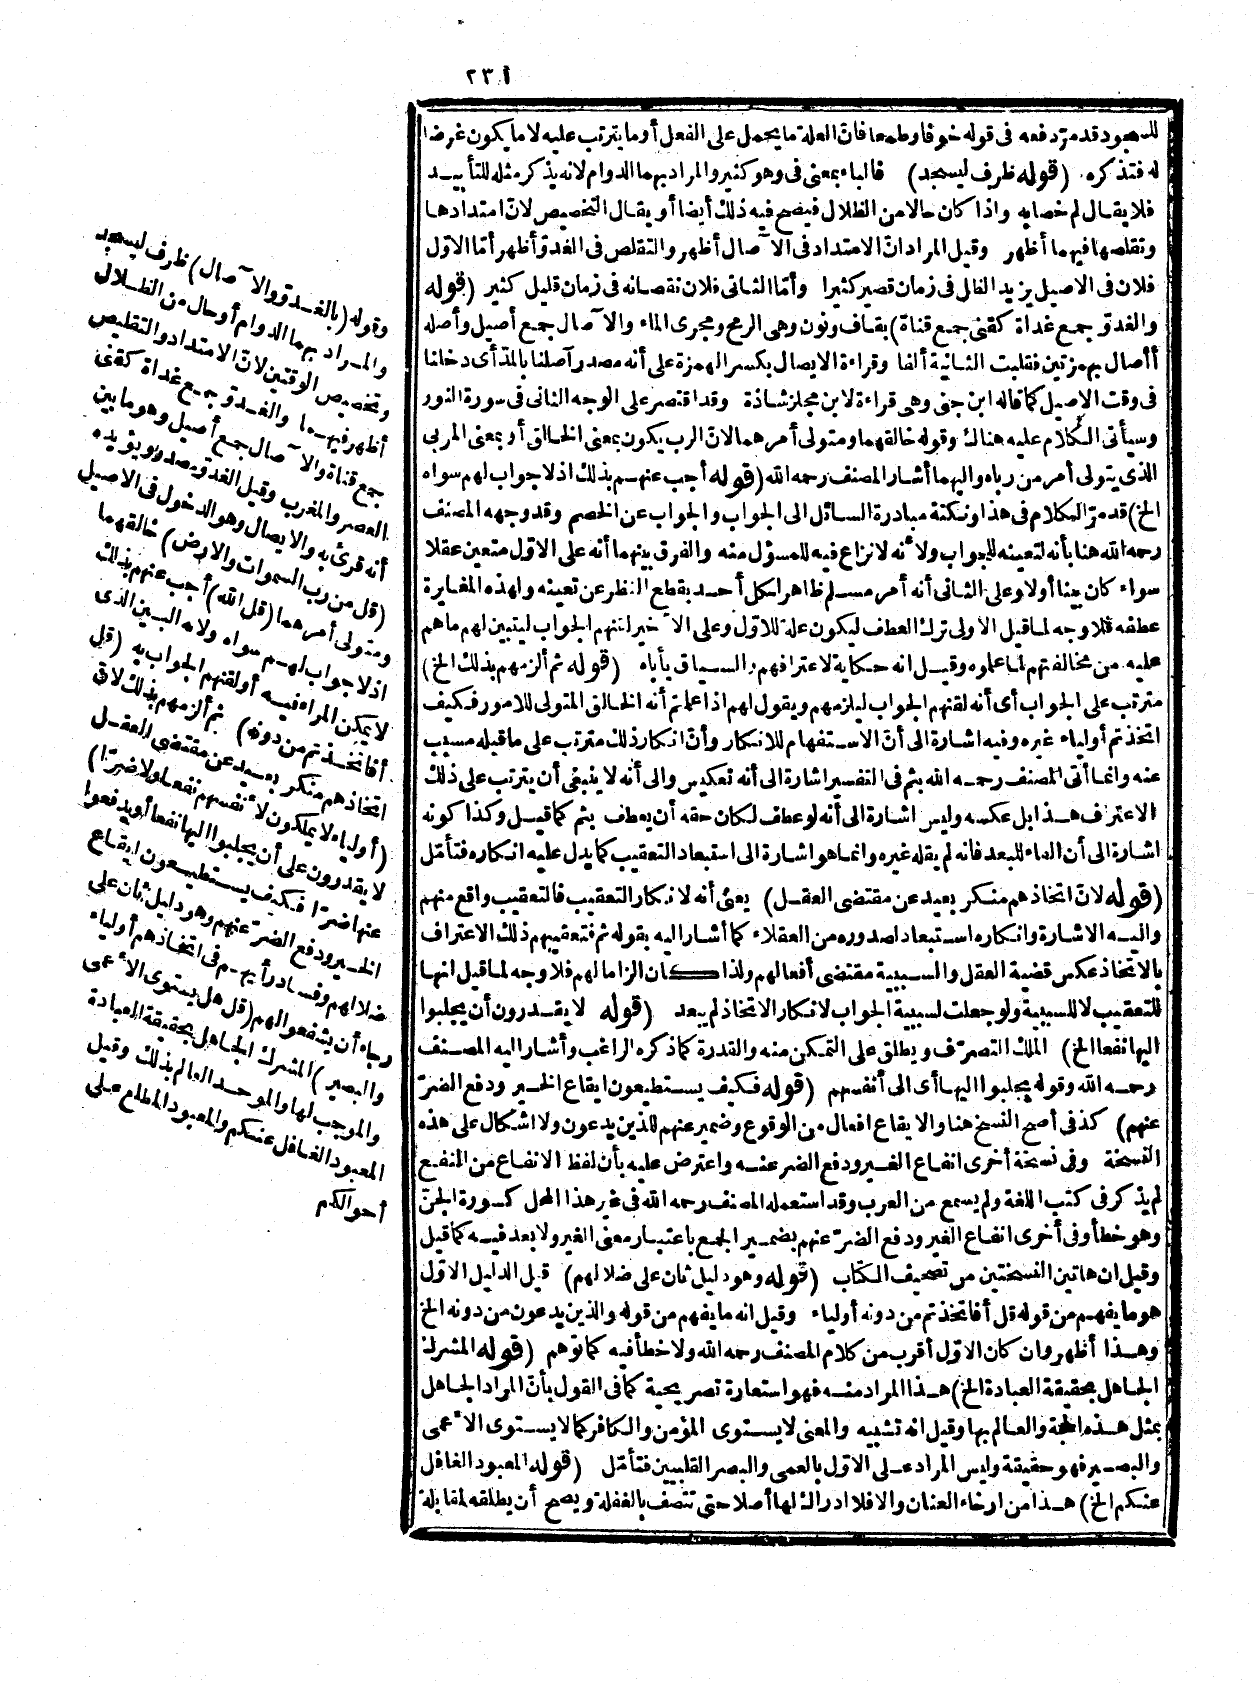 ٢٣١
للسجود قد مرّ دفعه فى قوله خوفا وطمعا فانّ العلة ما يحمل على الفعل أو ما يترتب عليه لا ما يكون غرضا
له فتذكره. (قوله ظرف ليسجد) فالباء بمعنى فى وهو كثير والمراد بهما الدوام لانه يذكر مثله للتأبيد
فلا يقال لم خصا به واذا كان حالا من الظلال فيصح فيه ذلك أيضا أو يقال التخصيص لانّ امتدادها
وتقلصها فيهما أظهر وقيل المراد انّ الامتداد فى الآصال أظهر والتقلص فى الغدوّ أظهر أمّا الاوّل
فلان فى الاصيل يزيد الفال فى زمان قصير كثيرا وأمّا الثانى فلان نقصانه فى زمان قليل كثير (قوله
والغدوّ جمع غداة كقنى جمع قناة) بقاف ونون وهى الرمح ومجرى الماء والآصال جمع أصيل وأصله
أأصال بهمزتين فقلبت الثانية ألفا وقراءة الايصال بكسر الهمزة على أنه مصدر آصلنا بالمدّ أى دخلنا
فى وقت الاصيل كما قاله ابن جنى وهى قراءة لابن مجلز شاذة وقد اقتصر على الوجه الثانى فى سورة النور
وسيأتى الكلام عليه هناك وقوله خالقهما ومتولى أمرهما لانّ الرب يكون بمعنى الخالق أو بمعنى المربى
الذى يتولى أمر من رباه واليهما أشار المصنف رحمه الله (قوله أجب عنهم بذلك اذ لا جواب لهم سواه
الخ) قد مرّ الكلام فى هذا ونكتة مبادرة السائل الى الجواب والجواب عن الخصم وقد وجهه المصنف
رحمه الله هنا بأنه لتعينه للجواب ولأنه لا نزاع فيه للمسؤل منه والفرق بينهما أنه على الاوّل متعين عقلا
سواء كان بينا أولا وعلى الثانى أنه أمر مسلم ظاهر لكل أحد بقطع النظر عن تعينه ولهذه المغايرة
عطفه فلا وجه لما قيل الاولى ترك العطف ليكون علة للاوّل وعلى الأخير لقنهم الجواب ليتبين لهم ما هم
عليه من مخالفتهم لما علموه وقيل انه حكاية لاعترافهم والسياق يأباه (قوله ثم ألزمهم بذلك الخ)
مترتب على الجواب أى أنه لقنهم الجواب ليلزمهم ويقول لهم اذا علمتم أنه الخالق المتولى للامور فكيف
اتخذتم أولياء غيره وفيه اشارة الى أنّ الاستفهام للانكار وأنّ انكار ذلك مترتب على ما قبله مسبب
عنه وانما أتى المصنف رحمه الله بثم فى التفسير اشارة الى أنه تعكيس والى أنه لا ينبغى أن يترتب على ذلك
الاعتراف هذا بل عكسه وليس اشارة الى أنه لو عطف لكان حقه أن يعطف بثم كما قيل وكذا كونه
اشارة الى أن الفاء للبعد فانه لم يقله غيره وانما هو اشارة الى استبعاد التعقيب كما يدل عليه انكاره فتأمّل
(قوله لانّ اتخاذهم منكر بعيد عن مقتضى العقل) يعنى أنه لانكار التعقيب فالتعقيب واقع منهم
واليه الاشارة وانكاره استبعاد لصدوره من العقلاء كما أشار اليه بقوله ثم فتعقيبهم ذلك الاعتراف
بالاتخاذ عكس قضية العقل والسببية مقتضى أفعالهم ولذا كان الزاما لهم فلا وجه لما قيل انها
للتعقيب لا للسببية ولو جعلت لسببية الجواب لانكار الاتخاذ لم يبعد (قوله لا يقدرون أن يجلبوا
اليها نفعا الخ) الملك التصرّف ويطلق على التمكن منه والقدرة كما ذكره الراغب وأشار اليه المصنف
رحمه الله وقوله يجلبوا اليها أى الى أنفسهم (قوله فكيف يستطيعون ايقاع الخير ودفع الضرّ
عنهم) كذا فى أصح النسخ هنا والايقاع افعال من الوقوع وضمير عنهم للذين يدعون ولا اشكال على هذه
النسخة وفى نسخة أخرى انفاع الغير ودفع الضر عنه واعترض عليه بأن لفظ الانفاع من النفع
لم يذكر فى كتب اللغة ولم يسمع من العرب وقد استعمله المصنف رحمه الله فى غير هذا المحل كسورة الجنّ
وهو خطأ وفى أخرى انفاع الغير ودفع الضرّ عنهم بضمير الجمع باعتبار معنى الغير ولا بعد فيه كما قيل
وقيل ان هاتين النسختين من تصحيف الكتاب (قوله وهو دليل ثان على ضلالهم) قيل الدليل الاوّل
هو ما يفهم من قوله قل أفاتخذتم من دونه أولياء وقيل انه ما يفهم من قوله والذين يدعون من دونه الخ
وهذا أظهر وان كان الاوّل أقرب من كلام المصنف رحمه الله ولا خطأ فيه كما توهم (قوله المشرك
الجاهل بحقيقة العبادة الخ) هذا المراد منه فهو استعارة تصريحية كما فى القول بأنّ المراد الجاهل
بمثل هذه الحجة والعالم بها وقيل انه تشبيه والمعنى لا يستوى المؤمن والكافر كما لا يستوى الأعمى
والبصير فهو حقيقة وليس المراد على الاوّل بالعمى والبصر القلبيين فتأمّل (قوله المعبود الغافل
عنكم الخ) هذا من ارخاء العنان والافلا ادراك لها أصلا حتى تتصف بالغفلة ويصح أن يطلقه لمقابلة
وقوله (بالغدوّ والآصال) ظرف ليسجد
والمراد بهما الدوام أو حال من الظلال
وتخصيص الوقتين لانّ الامتداد والتقليص
أظهر فيهما والغدوّ جمع غداة كقنى
جمع قناة والآصال جمع أصيل وهو ما بين
العصر والمغرب وقيل الغدوّ مصدر ويؤيده
أنه قرئ به والايصال وهو الدخول فى الاصيل
(قل من رب السموات والارض) خالقهما
ومتولى أمرهما (قل الله) أجب عنهم بذلك
اذ لا جواب لهم سواه ولانه البين الذى
لا يمكن المراء فيه أو لقنهم الجواب به (قل
أفاتخذتم من دونه) ثم ألزمهم بذلك لانّ
اتخاذهم منكر بعيد عن مقتضى العقل
(أولياء لا يملكون لأنفسهم نفعا ولا ضرّا)
لا يقدرون على أن يجلبوا اليها نفعا أو يدفعوا
عنها ضرّا فكيف يستطيعون ايقاع
الخير ودفع الضرّ عنهم وهو دليل ثان على
ضلالهم وفساد رأيهم فى اتخاذهم أولياء
رجاء أن يشفعوا لهم (قل هل يستوى الأعمى
والبصير) المشرك الجاهل بحقيقة العبادة
والموجب لها والموحد العالم بذلك وقيل
المعبود الغافل عنكم والمعبود المطلع على
أحوالكم